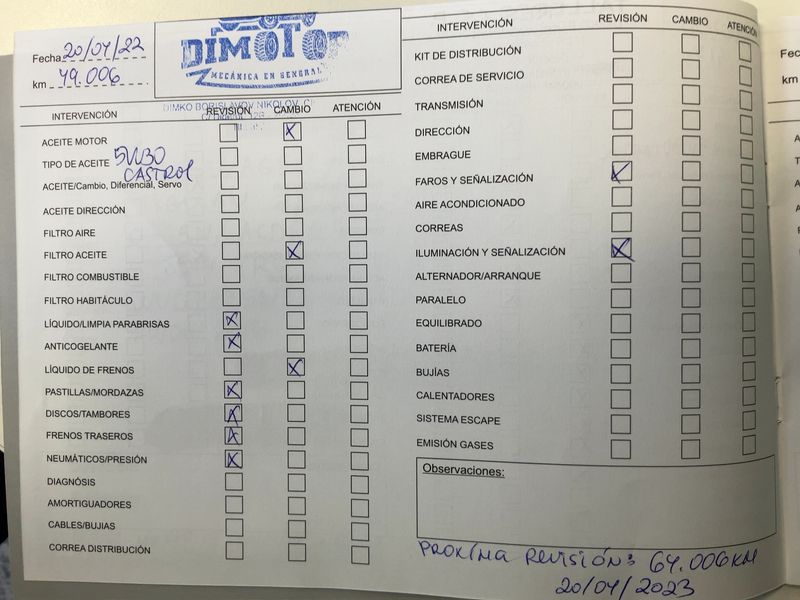 Fecha 20/04/22
km 49.006
DÍMOTOR
MECÁNICA EN GENERAL
DIMKO BORISLAVOV NIKOLOV
INTERVENCIÓN REVISIÓN CAMBIO ATENCIÓN
ACEITE MOTOR X
TIPO DE ACEITE 5W30
CASTROL
ACEITE/Cambio, Diferencial, Servo
ACEITE DIRECCIÓN
FILTRO AIRE
FILTRO ACEITE X
FILTRO COMBUSTIBLE
FILTRO HABITÁCULO
LÍQUIDO/LIMPIA PARABRISAS X
ANTICOGELANTE X
LÍQUIDO DE FRENOS X
PASTILLAS/MORDAZAS X
DISCOS/TAMBORES X
FRENOS TRASEROS X
NEUMÁTICOS/PRESIÓN X
DIAGNÓSIS
AMORTIGUADORES
CABLES/BUJIAS
CORREA DISTRIBUCIÓN
INTERVENCIÓN REVISIÓN CAMBIO ATENCIÓN
KIT DE DISTRIBUCIÓN
CORREA DE SERVICIO
TRANSMISIÓN
DIRECCIÓN
EMBRAGUE
FAROS Y SEÑALIZACIÓN X
AIRE ACONDICIONADO
CORREAS
ILUMINACIÓN Y SEÑALIZACIÓN X
ALTERNADOR/ARRANQUE
PARALELO
EQUILIBRADO
BATERÍA
BUJÍAS
CALENTADORES
SISTEMA ESCAPE
EMISIÓN GASES
Observaciones:
PROXÍMA REVISIÓN: 64.006 KM
20/04/2023